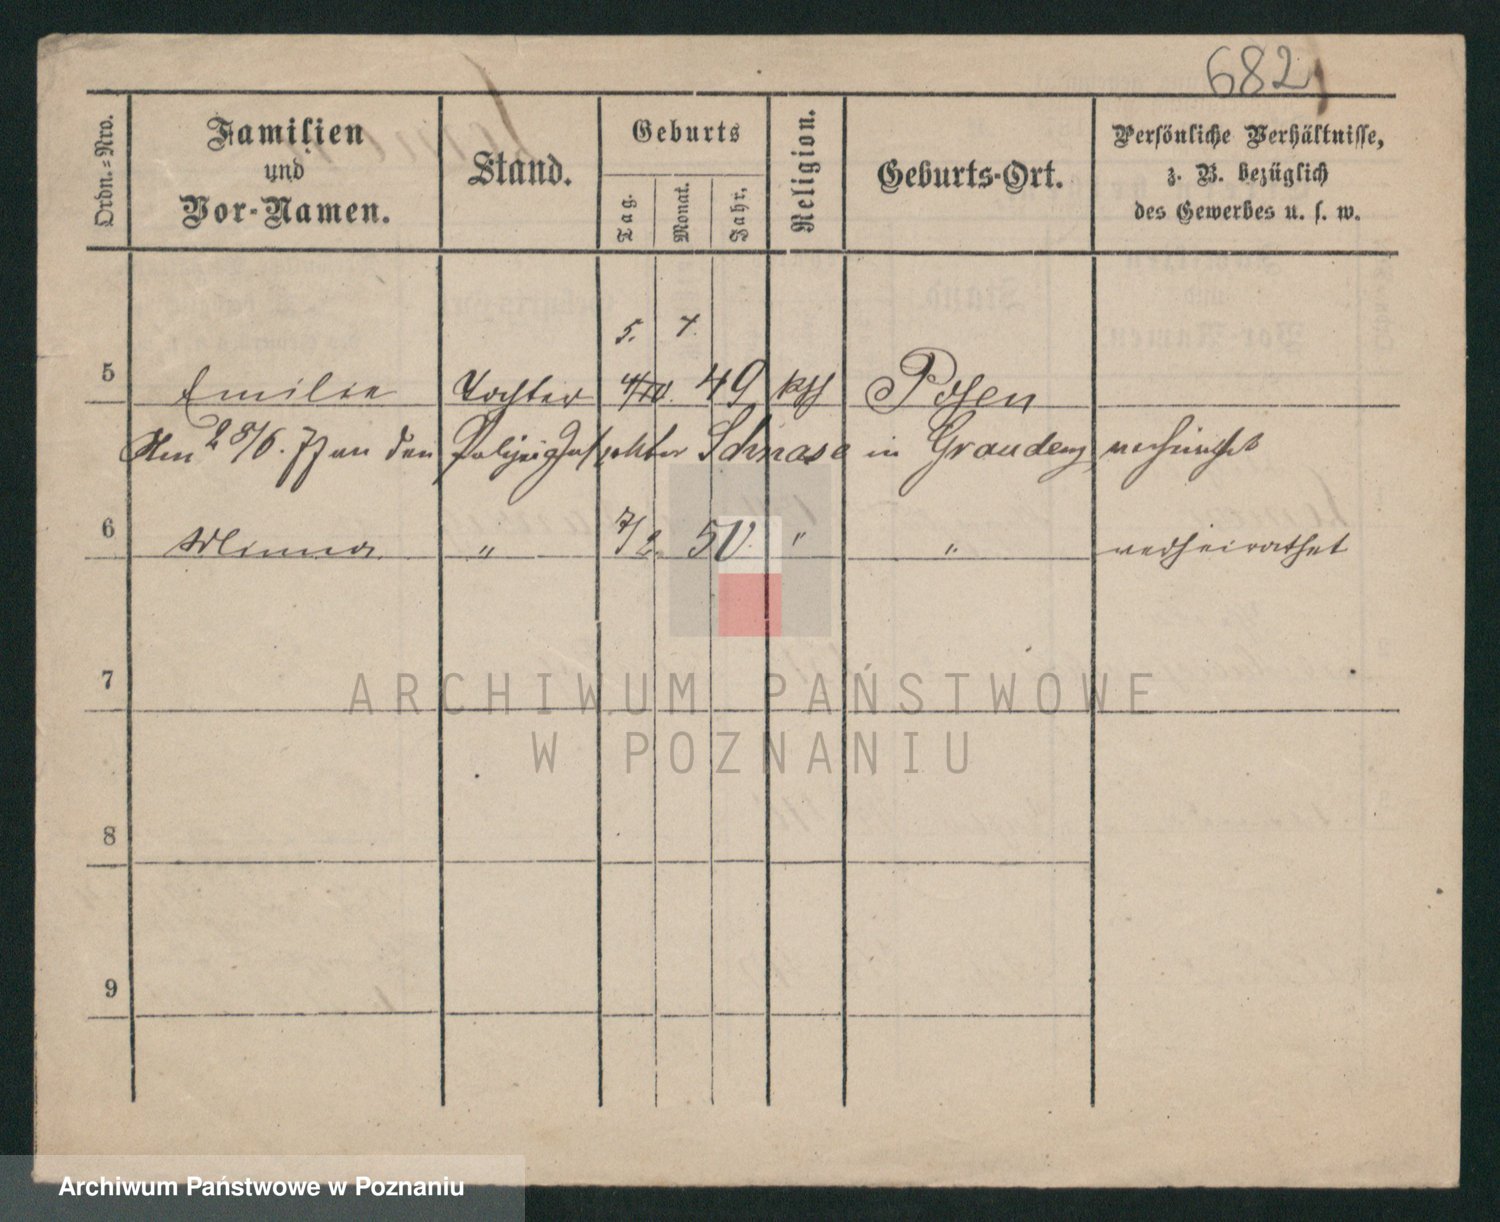 682
Ordn.-Nro.
Familien
und
Vor-Namen.
Stand.
Geburts
Tag.
Monat.
Jahr.
Religion.
Geburts-Ort.
Persönliche Verhältnisse,
z. B. bezüglich
des Gewerbes u. s. w.
5. 7.
5 Emilie Tochter 49 kth Posen
Am 28/6. 77 an den Polizei Inspektor Schnase in Graudenz verheirathet
6 Minna " 7/2. 50. " " verheirathet
7
ARCHIWUM PAŃSTWOWE
W POZNANIU
8
9
Archiwum Państwowe w Poznaniu